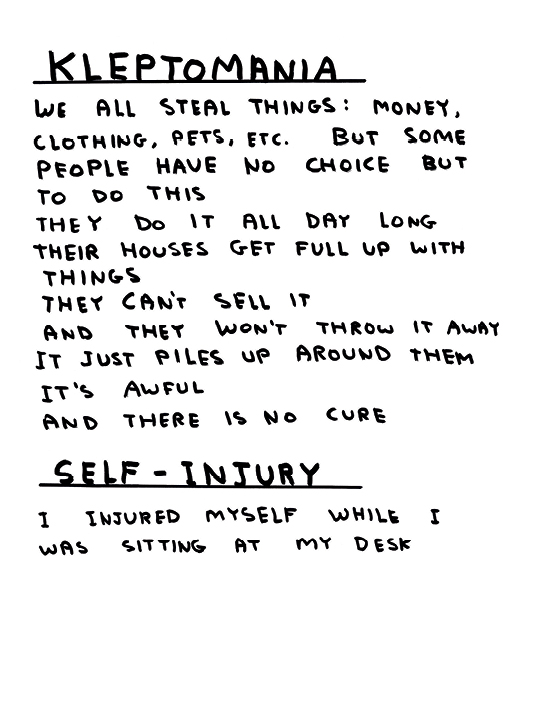 KLEPTOMANIA
WE ALL STEAL THINGS: MONEY,
CLOTHING, PETS, ETC. BUT SOME
PEOPLE HAVE NO CHOICE BUT
TO DO THIS
THEY DO IT ALL DAY LONG
THEIR HOUSES GET FULL UP WITH
THINGS
THEY CAN'T SELL IT
AND THEY WON'T THROW IT AWAY
IT JUST PILES UP AROUND THEM
IT'S AWFUL
AND THERE IS NO CURE
SELF-INJURY
I INJURED MYSELF WHILE I
WAS SITTING AT MY DESK